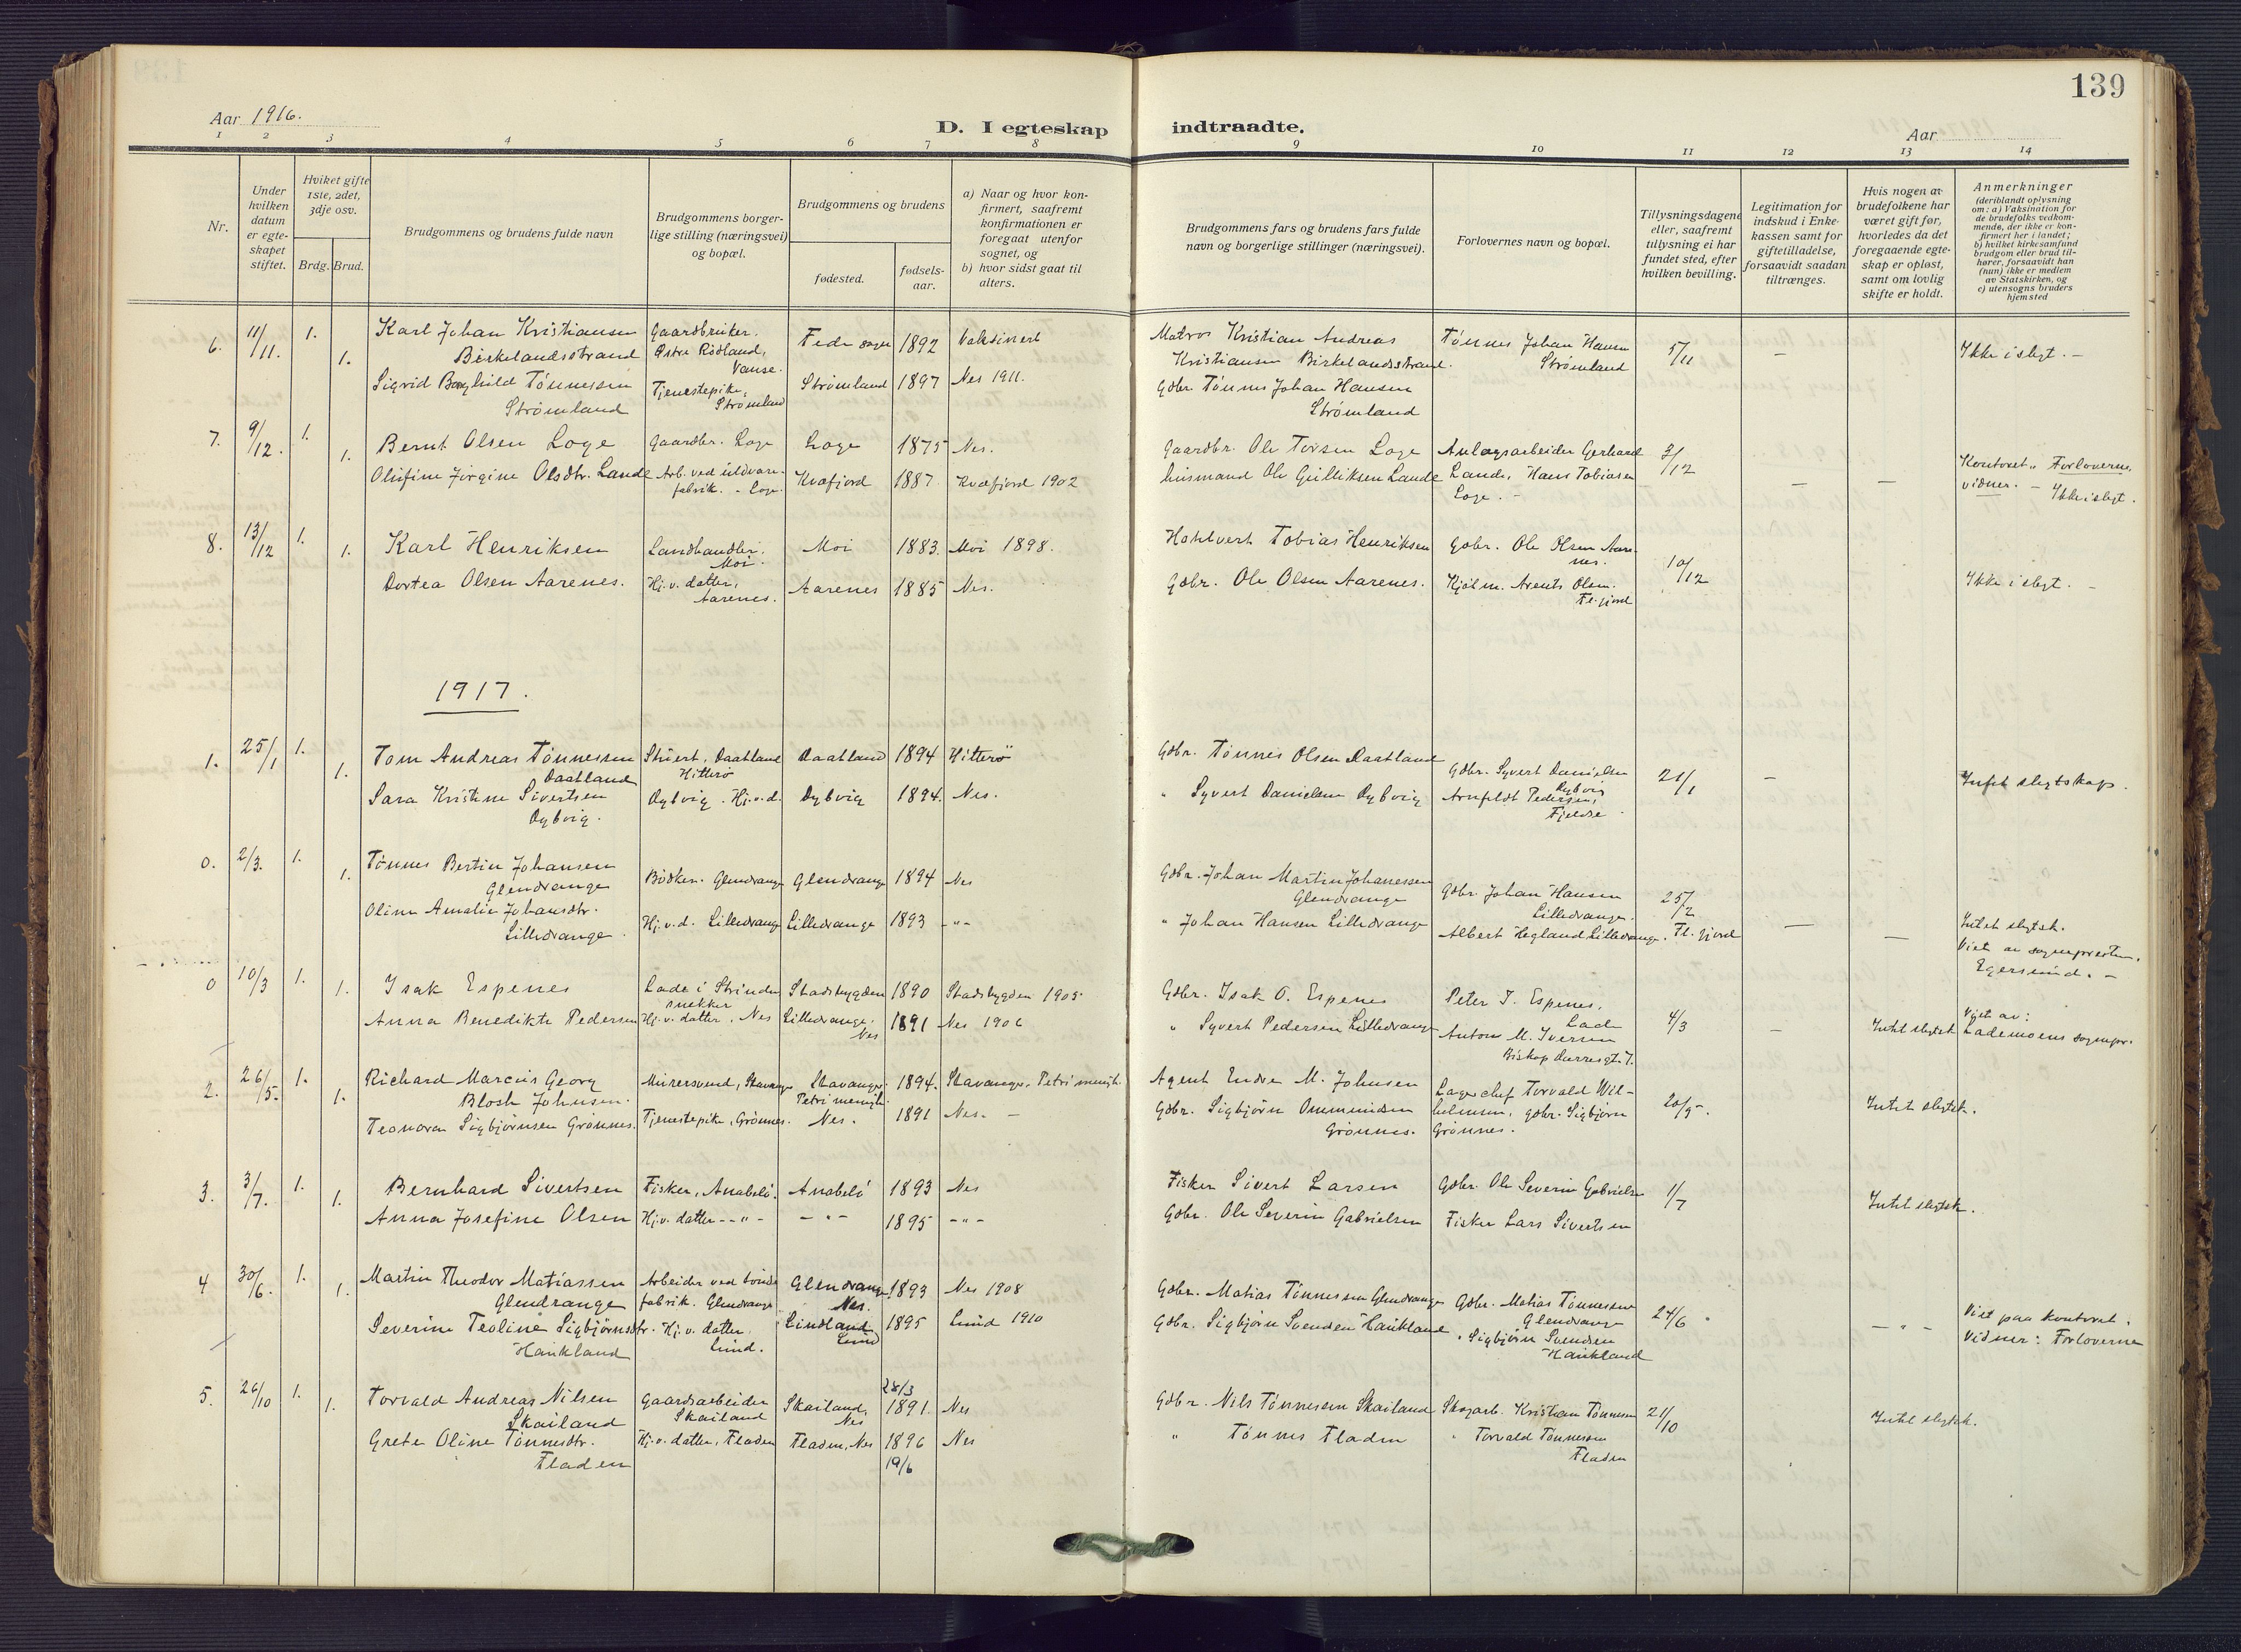 139
Aar 1916.
D. I egteskap indtraadte.
Aar
1 2 3 4 5 6 7 8 9 10 11 12 13 14
Nr.
Under hvilken datum er egteskapet stiftet.
Hviket gifte 1ste, 2det, 3dje osv.
Brdg. Brud.
Brudgommens og brudens fulde navn
Brudgommens borgerlige stilling (næringsvei) og bopæl.
Brudgommens og brudens
fødested.
fødselsaar.
a) Naar og hvor konfirmert, saafremt konfirmationen er foregaat utenfor sognet, og
b) hvor sidst gaat til alters.
Brudgommens fars og brudens fars fulde navn og borgerlige stillinger (næringsvei).
Forlovernes navn og bopæl.
Tillysningsdagene eller, saafremt tillysning ei har fundet sted, efter hvilken bevilling.
Legitimation for indskud i Enkekassen samt for giftetilladelse, forsaavidt saadan tiltrænges.
Hvis nogen av brudefolkene har været gift før, hvorledes da det foregaaende egteskap er opløst, samt om lovlig skifte er holdt.
Anmerkninger (deriblandt oplysning om: a) Vaksination for de brudefolks vedkommende, der ikke er konfirmert her i landet; b) hvilket kirkesamfund brudgom eller brud tilhører, forsaavidt han (hun) ikke er medlem av Statskirken, og c) utensogns bruders hjemsted
6. 11/11. 1. 1.
Karl Johan Kristiansen Birkelandsstrand
Gaardbruker. Østre Rødland, Vanse.
Feda sogn 1892 Vaksinert
Matros Kristian Andreas Kristiansen Birkelandsstrand.
Tønnes Johan Hansen Strømland
5/11 – Ikke i slegt. –
Sigrid Borghild Tønnessen Strømland
Tjenestepike, Strømland
Strømland 1897 Nes 1911.
Gdbr. Tønnes Johan Hansen Strømland
7. 9/12. 1. 1.
Bernt Olsen Loge
Gaardbr. Loge Loge 1875 Nes.
Gaardbr. Ole Torsen Loge
Anlægsarbeider Gerhard Lande, Hans Tobiasen Loge. –
3/12 – –
Kontoret. Forloverne vidner. – Ikke i slegt.
Olufine Jørgine Olsdtr. Lande
Arb. ved uldvarefabrik. – Loge.
Kvæfjord 1887 Kvæfjord 1902
husmand Ole Gulliksen Lande
8. 13/12 1. 1.
Karl Henriksen
Landhandler. Moi.
Moi 1883. Moi 1898.
Tobias Henriksen
Gdbr. Ole Olsen Aarenes.
10/12
Ikke i slegt. –
Dortea Olsen Aarenes.
Hj. v. datter, Aarenes.
Aarenes 1885 Nes.
Gdbr. Ole Olsen Aarenes.
Kjøbm. Arents Olsen. Fl.fjord
1917.
1. 25/1 1. 1.
Tom Andreas Tønnessen Daatland
Stuert, Daatland Hitterø
Daatland 1894 Hitterö
Gdbr. Tønnes Olsen Daatland
Gdbr. Syvert Danielsen Dybvig
21/1 –
Intet slegtskap.
Sara Kristine Sivertsen Dybvig.
Dybvig. Hj. v. d. Dybvig 1894. Nes.
" Syvert Danielsen Dybvig
Arnfeldt Pedersen, Fjeldse
0. 2/3. 1. 1.
Tønnes Bertin Johansen Glendrange
Bødker. Glendrange Glendrange 1894 Nes
Gdbr. Johan Martin Johanessen Glendrange
Gdbr. Johan Hansen Lilledrange.
25/2 Fl.fjord – –
Oline Amalie Johansdtr. Lilledrange.
Hj. v. d. Lilledrange Lilledrange 1893 – " –
" Johan Hansen Lilledrange
Albert Hegland Lilledrange.
Intet slegtsk. Viet av sognepresten. Egersund. –
0 10/3 1. 1.
Isak Espenes
Lade i Strinden snekker
Stadsbygden 1890 Stadsbygden 1905
Gdbr. Isak O. Espenes
Peter I. Espenes. Lade
4/3 – Intet slegtsk
Viet av: Lademoens sognepr.
Anna Benedikte Pedersen
Hj. v. datter, Nes Lilledrange. Nes
1891 Nes 1906
" Syvert Pedersen Lilledrange
Anton M. Iversen Biskop Darresgt. 7.
2. 26/5. 1. 1.
Richard Marcus Georg Blosh Johnsen.
Murersvend, Stavanger Stavanger. Petri menigh. 1894. Stavanger, Petri menigh.
Agent Endre M. Johnsen
Lagerchef Torvald Wilhelmsen, gdbr. Sigbjørn Grønnes.
20/5.
Intet slegtsk.
Teonora Sigbjørnsen Grønnes.
Tjenestepike, Grønnes. Nes. 1891 Nes. –
Gdbr. Sigbjørn Ommundsen Grønnes.
3. 3/7. 1. 1.
Bernhard Sivertsen
Fisker, Anabelö. Anabelö 1893 Nes
Fisker Sivert Larsen
Gdbr. Ole Severin Gabrielsen
1/7
Intet slegtsk.
Anna Josefine Olsen
Hj. v. datter – " – – " – 1895 – " –
Gdbr. Ole Severin Gabrielsen
Fisker Lars Sivertsen
4 30/6. 1. 1.
Martin Theodor Matiassen Glendrange
Arbeider ved tøndefabrik. Glendrange
Glendrange Nes. 1893 Nes 1908
Gdbr. Matias Tønnessen Glendrange
Gdbr. Matias Tønnessen Glendrange
24/6
– " –
Viet paa kontoret. Vidner: Forloverne
Severine Teoline Sigbjørnsdtr. Haukland
Hj. v. datter. Lund.
Lindland Lund 1895 Lund 1910
Gdbr. Sigbjørn Svendsen Haukland
" Sigbjørn Svendsen Haukland
5. 26/10 1. 1.
Torvald Andreas Nilsen Skailand
Gaardsarbeider Skailand
Skailand, Nes 28/3 1891. Nes
Gdbr. Nils Tønnessen Skailand
Skogarb. Kristian Tønnesen
21/10
Intet slegtsk.
Grete Oline Tønnesdtr. Fladen
Hj. v. datter, Fladen Fladen, Nes 1896 19/6 Nes
" Tønnes Fladen
" Torvald Tønnessen Fladen